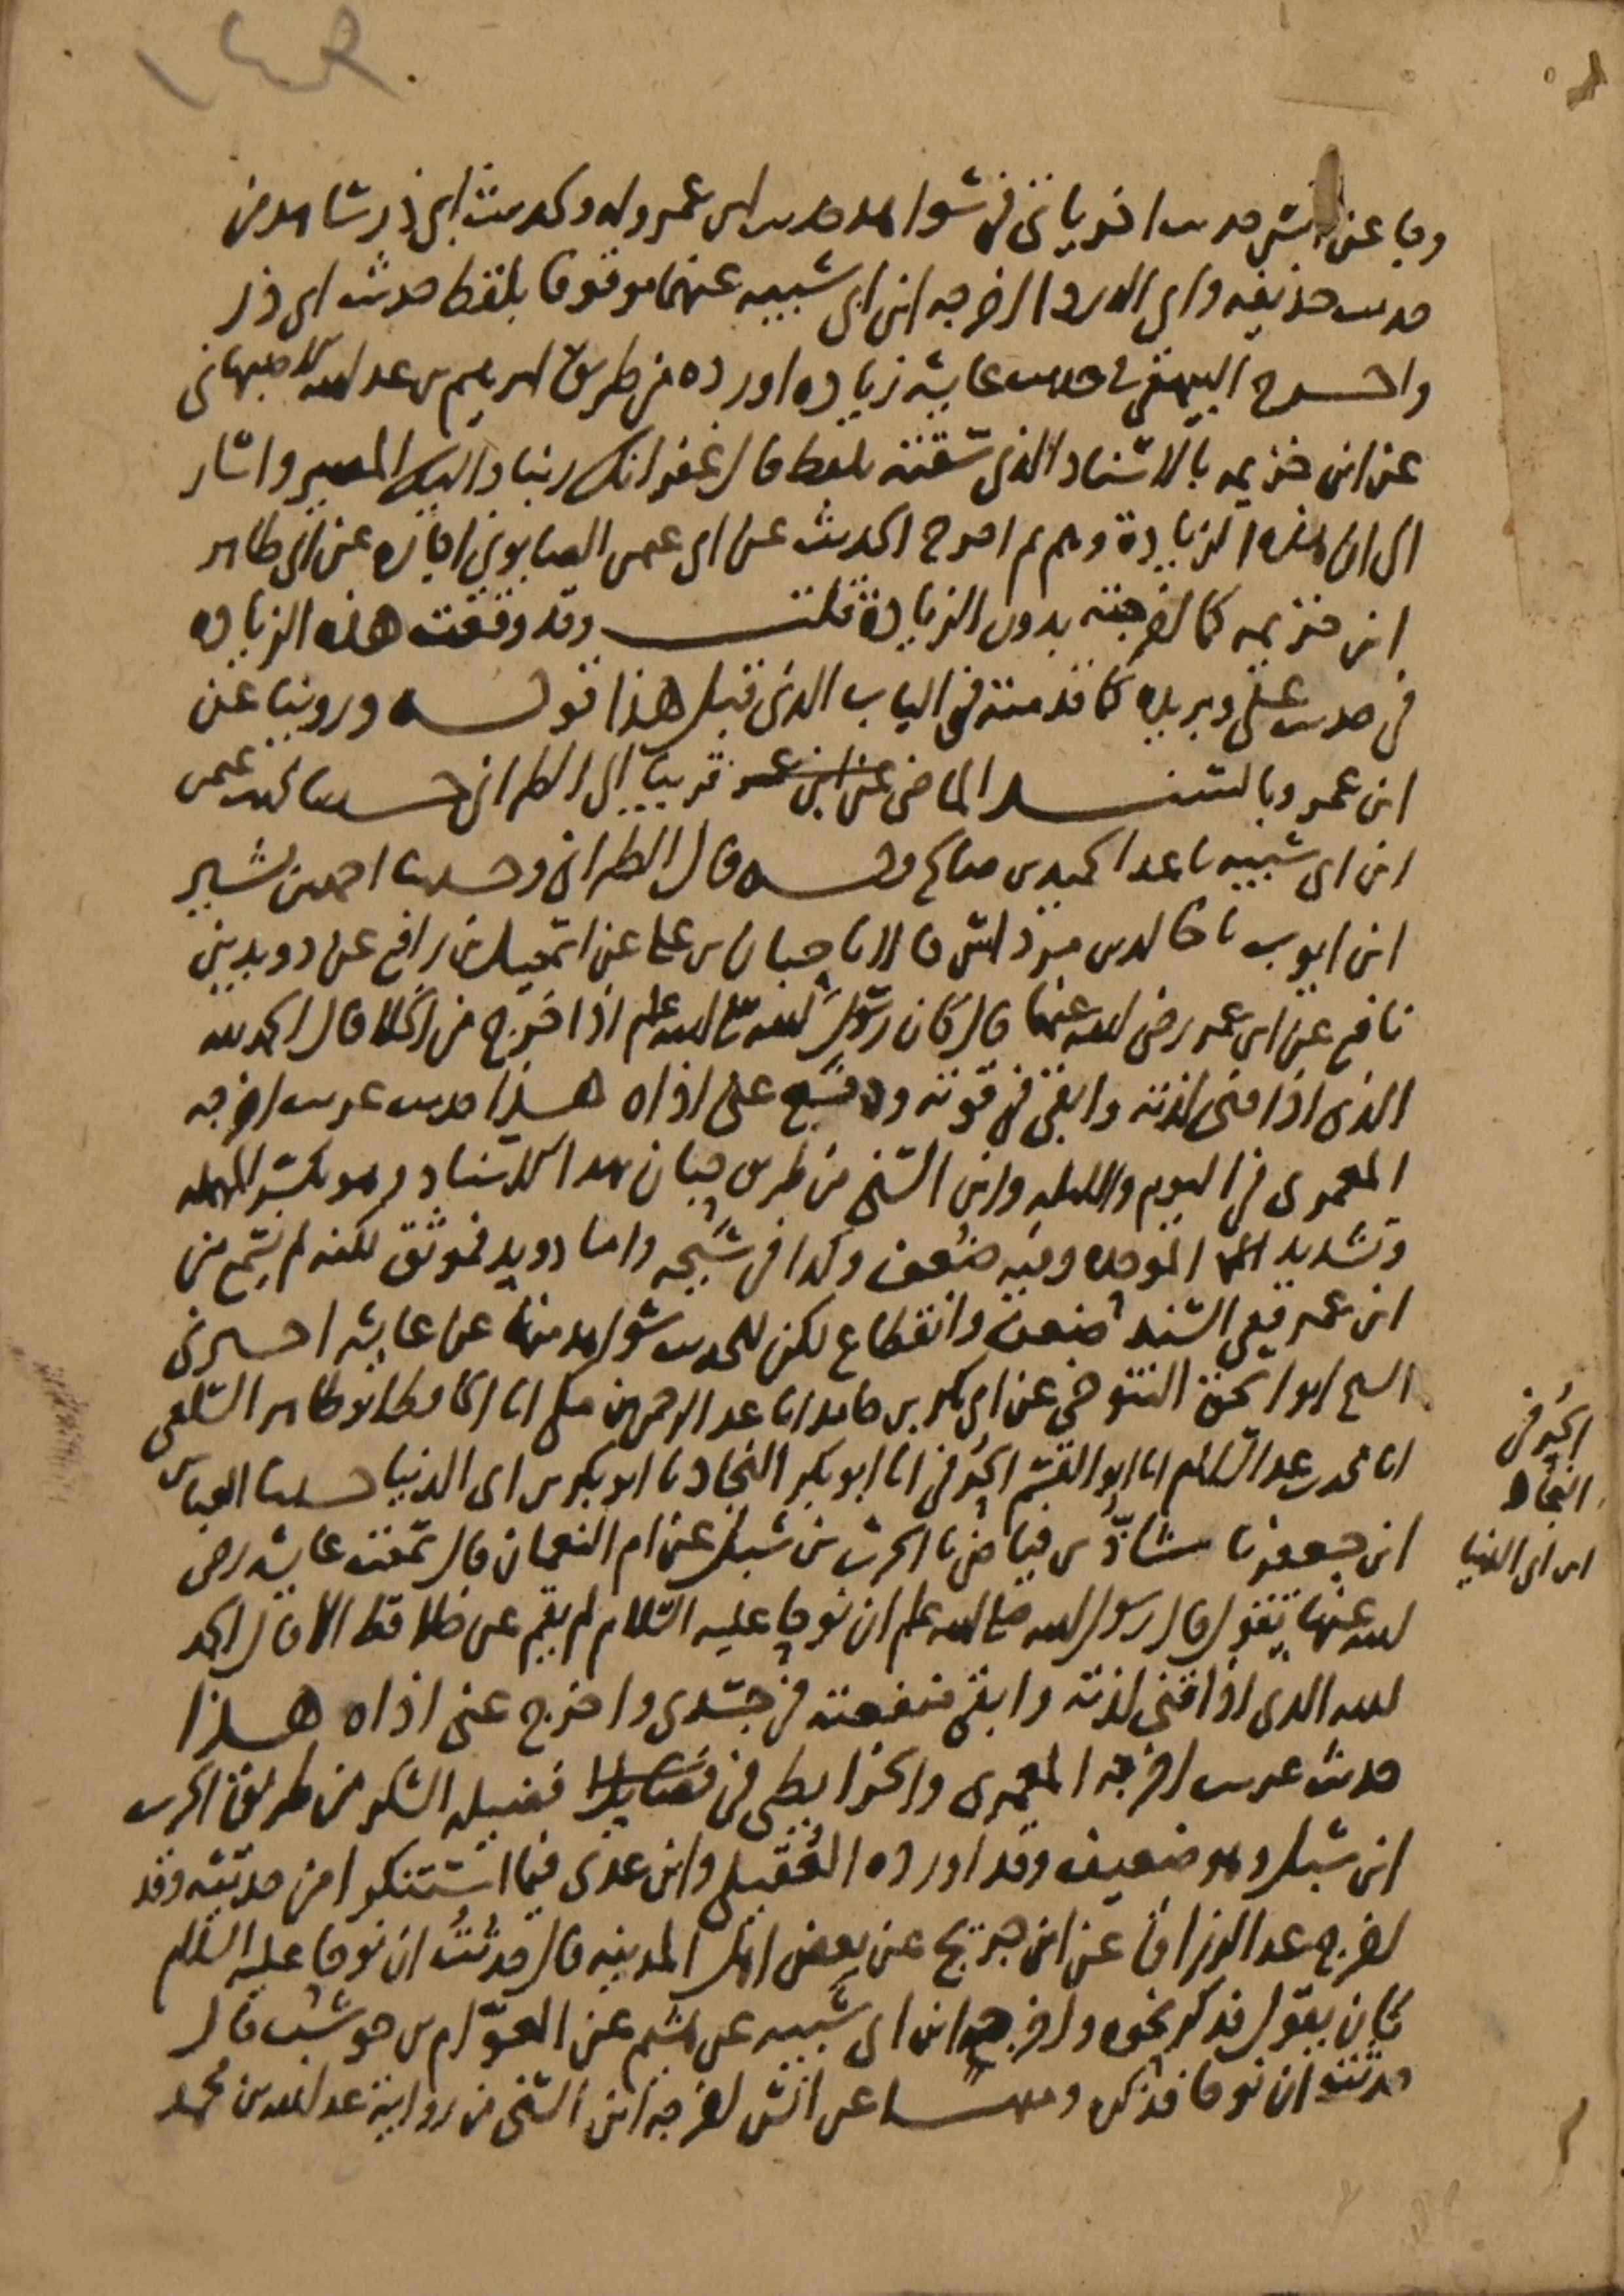 وجا عن انس حديث اخر ياتي في شواهد حديث ابن عمر وله ولحديث ابي ذر شاهد من
حديث حذيفة وابي الدرداء اخرجه ابن ابي شيبة عنهما موقوفا بلفظ حديث ابي ذر
واخرج البيهقي في حديث عايشه زيادة اورده من طريق ابرهيم بن عبد الله الاصبهاني
عن ابن خزيمه بالاسناد الذي سقته بلفظ قال غفرانك ربنا واليك المصير واشار
الى ان هذه الزيادة وهم ثم اخرج الحديث عن ابي عثمن الصابوني اجازه عن ابي طاهر
ابن خزيمه كما اخرجته بدون الزيادة قلت وقد وقعت هذه الزيادة
في حديث علي وبريده كما قدمته في الباب الذي قبل هذا قوله وروينا عن
ابن عمر وبالسند الماضي قريبا الى الطبراني حدثنا محمد بن عثمن
ابن ابي شيبه نا عبد الحميد بن صالح وبه قال الطبراني وحدثنا احمد بن بشير
ابن ايوب نا خالد بن مرداس قالا نا حبان بن علي عن اسمعيل بن رافع عن دويد بن
نافع عن ابن عمر رضي الله عنهما قال كان رسول الله صلى الله عليه وسلم اذا خرج من الخلا قال الحمد لله
الذي اذاقني لذته وابقى في قوته ودفع عني اذاه هذا حديث غريب اخرجه
المعمري في اليوم والليله وابن السني من طريق حبان بهذا الاسناد وهو بكسر المهمله
وتشديد الموحده وفيه ضعف وكذا في شيخه واما دويد فموثق لكنه لم يسمع من
ابن عمر ففي السند ضعف وانقطاع لكن للحديث شواهد منها عن عايشه اخبرني
الشيخ ابو اسحق التنوخي عن ابي بكر بن حامد انا عبد الرحمن بن مكي انا الحافظ ابو طاهر السلفي
انا محمد بن عبد السلام انا ابو القسم الحُرفي انا ابو بكر النجاد نا ابو بكر بن ابي الدنيا حدثنا العباس
ابن جعفر نا شاذ بن فياض نا الحرث بن شبل عن ام النعمان قال سمعت عايشه رضي
الله عنها تقول قال رسول الله صلى الله عليه وسلم ان نوحا عليه السلام لم يقم عن خلا قط الا قال الحمد
لله الذي اذاقني لذته وابقى منفعته في جسدي واخرج عني اذاه هذا
حديث غريب اخرجه المعمري والخرايطي في فضيله الشكر من طريق الحرث
ابن شبل وهو ضعيف وقد اورده العُقيلي وابن عدي فيما استنكر من حديثه وقد
اخرج عبد الرزاق عن ابن جريج عن بعض اهل المدينه قال حُدثتُ ان نوحا عليه السلام
كان يقول فذكر نحوه واخرجه ابن ابي شيبه عن هشيم عن العوّام بن حوشب قال
حدثت ان نوحا فذكره ومنها عن انس اخرجه ابن السني من رواية عبد الله بن محمد
الحُرفي
النجاد
ابن ابي الدنيا